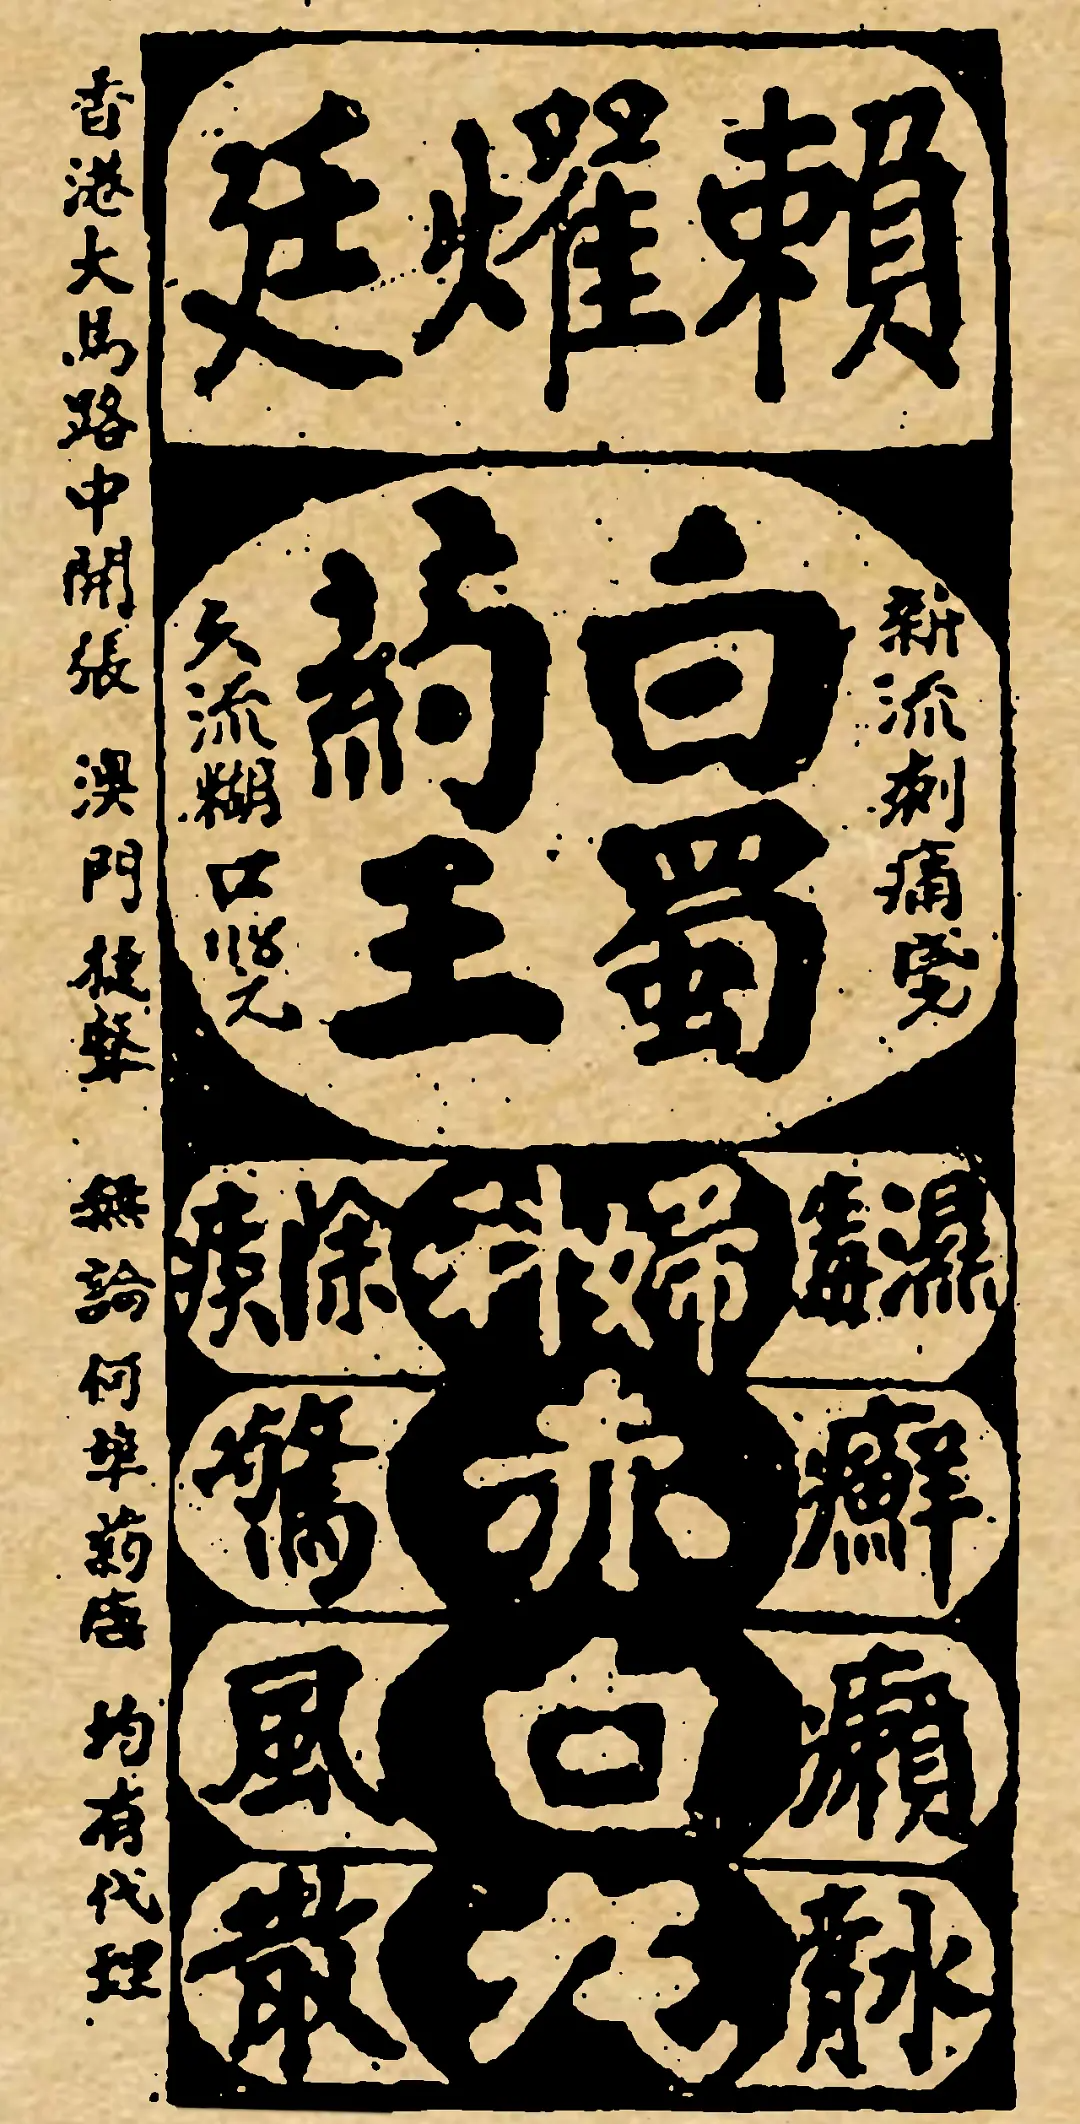 賴燿廷
新流刺痛
白蜀
葯王
久流糊口
濕毒癬癩水膏
婦科赤白丸
除痰驚風散
香港大馬路中開張 澳門捷 無論何埠葯店 均有代理